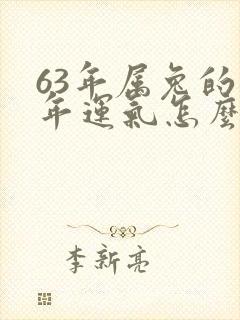 63年属兔的
年運氣怎麼
李新亮